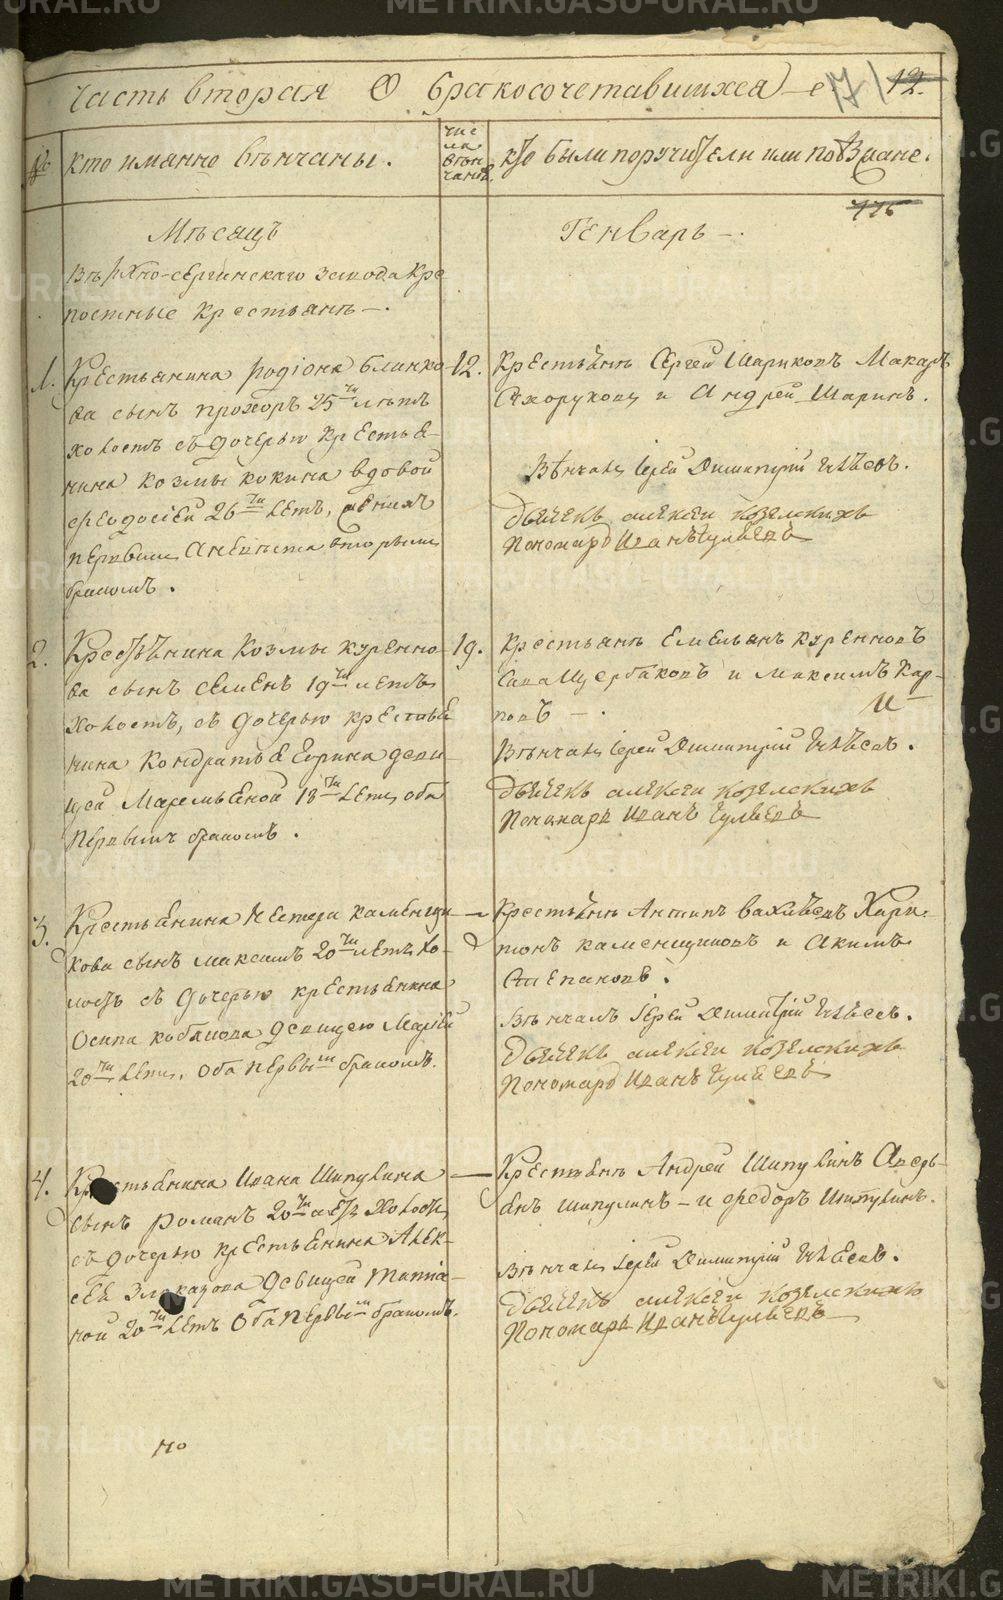 Часть вторая О бракосочетавшихся
17 12.
№
кто имянно вѣнчаны.
чис
ла
вѣн
чанiя.
кто были поручители или поѣзжане.
776
Мѣсяцъ
Генварь —.
Верхно-сергинскаго завода Кре
постные крестьянѣ —.
1. Крестьянина родiона блинко
ва сынъ прохоръ 25ти лѣтъ
холостъ съ дочерью крестья
нина козмы кокина вдовой
феодосiей 26ти летъ, женихъ
первымъ а невѣста вторымъ
бракомъ.
12. Крестьянѣ Сергей Шариковъ Макаръ
Сухоруковъ и Андрей Шаринъ.
Вѣнчалъ Iерей Димитрiй
дьячекъ алексеи козелскихъ
Пономарь Иванъ
2. Крестьянина Козмы куренно
ва сынъ семенъ 19ти летъ
холостъ, съ дочерью крестья
нина Кондратья девы
цей Маремьяной 18ти летъ оба
первымъ бракомъ.
19. Крестьянѣ Емельянъ куренновъ
Сава Щербаковъ и Максимъ Кар-
повъ —.
Вѣнчалъ iерей Димитрiй
дьячекъ алексеи козелскихъ
Пономарь Иванъ
3. Крестьянина Нестера каменщи
кова сынъ максимъ 20ти летъ хо-
лостъ съ дочерью крестьянина
Осипа девицею Марiей
20ти летъ. оба первымъ бракомъ.
— Крестьянѣ Антипъ Хари-
тонъ каменщиковъ и Акимъ
Степановъ.
Вѣнчалъ Iерей Димитрiй
дьячекъ алексеи козелскихъ
Пономарь Иванъ
4. Крестьянина Ивана Шипулина
сынъ романъ 20ти летъ холостъ,
съ дочерью крестьянина Алек-
сея Злоказова девицей татiа-
ной 20ти летъ Оба первымъ бракомъ.
— Крестьянѣ Андрей Шипулинъ Аверь-
янъ шипулинъ — и федоръ Шипулинъ.
Вѣнчалъ iерей Димитрiй
дьячекъ алексеи козелскихъ
Пономарь Иванъ
по
METRIKI.GASO-URAL.RU